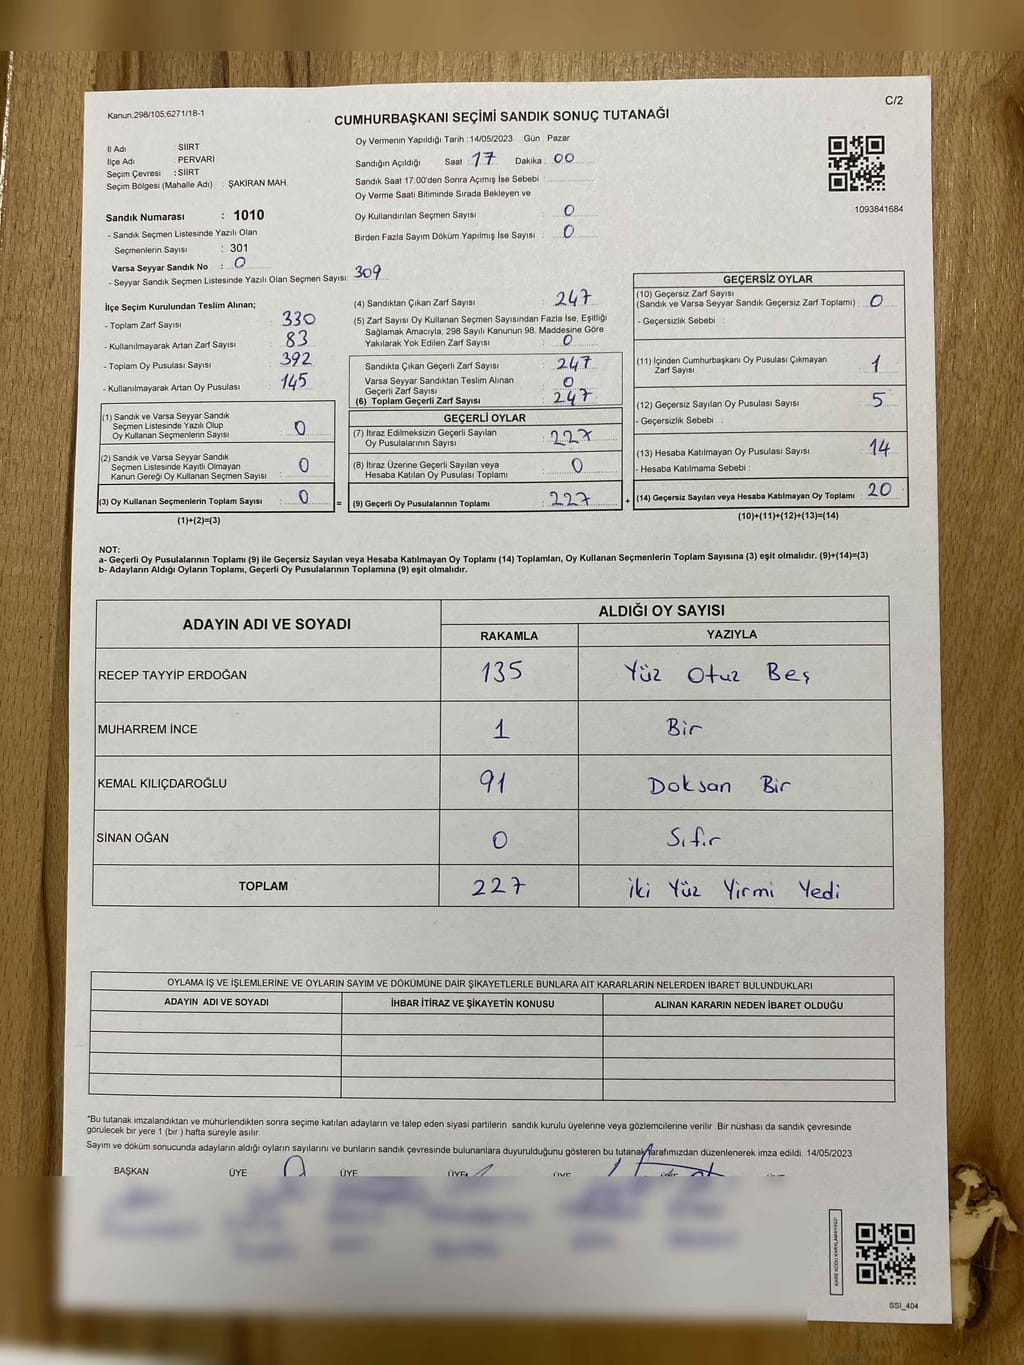 C/2
Kanun:298/105;6271/18-1
CUMHURBAŞKANI SEÇİMİ SANDIK SONUÇ TUTANAĞI
İl Adı : SİİRT
İlçe Adı : PERVARİ
Seçim Çevresi : SİİRT
Seçim Bölgesi (Mahalle Adı) : ŞAKİRAN MAH.
Sandık Numarası : 1010
- Sandık Seçmen Listesinde Yazılı Olan
Seçmenlerin Sayısı : 301
Varsa Seyyar Sandık No : 0
- Seyyar Sandık Seçmen Listesinde Yazılı Olan Seçmen Sayısı: 309
Oy Vermenin Yapıldığı Tarih : 14/05/2023 Gün : Pazar
Sandığın Açıldığı Saat : 17 Dakika : 00
Sandık Saat 17.00'den Sonra Açımış İse Sebebi :
Oy Verme Saati Bitiminde Sırada Bekleyen ve
Oy Kullandırılan Seçmen Sayısı : 0
Birden Fazla Sayım Döküm Yapılmış İse Sayısı : 0
1093841684
İlçe Seçim Kurulundan Teslim Alınan;
- Toplam Zarf Sayısı : 330
- Kullanılmayarak Artan Zarf Sayısı : 83
- Toplam Oy Pusulası Sayısı : 392
- Kullanılmayarak Artan Oy Pusulası : 145
(1) Sandık ve Varsa Seyyar Sandık
Seçmen Listesinde Yazılı Olup
Oy Kullanan Seçmenlerin Sayısı : 0
(2) Sandık ve Varsa Seyyar Sandık
Seçmen Listesinde Kayıtlı Olmayan
Kanun Gereği Oy Kullanan Seçmen Sayısı : 0
(3) Oy Kullanan Seçmenlerin Toplam Sayısı : 0 =
(1)+(2)=(3)
(4) Sandıktan Çıkan Zarf Sayısı : 247
(5) Zarf Sayısı Oy Kullanan Seçmen Sayısından Fazla İse, Eşitliği
Sağlamak Amacıyla; 298 Sayılı Kanunun 98. Maddesine Göre
Yakılarak Yok Edilen Zarf Sayısı : 0
Sandıkta Çıkan Geçerli Zarf Sayısı : 247
Varsa Seyyar Sandıktan Teslim Alınan
Geçerli Zarf Sayısı : 0
(6) Toplam Geçerli Zarf Sayısı : 247
GEÇERLİ OYLAR
(7) İtiraz Edilmeksizin Geçerli Sayılan
Oy Pusulalarının Sayısı : 227
(8) İtiraz Üzerine Geçerli Sayılan veya
Hesaba Katılan Oy Pusulası Toplamı : 0
(9) Geçerli Oy Pusulalarının Toplamı : 227 +
GEÇERSİZ OYLAR
(10) Geçersiz Zarf Sayısı
(Sandık ve Varsa Seyyar Sandık Geçersiz Zarf Toplamı) : 0
- Geçersizlik Sebebi :
(11) İçinden Cumhurbaşkanı Oy Pusulası Çıkmayan
Zarf Sayısı : 1
(12) Geçersiz Sayılan Oy Pusulası Sayısı : 5
- Geçersizlik Sebebi :
(13) Hesaba Katılmayan Oy Pusulası Sayısı : 14
- Hesaba Katılmama Sebebi :
(14) Geçersiz Sayılan veya Hesaba Katılmayan Oy Toplamı : 20
(10)+(11)+(12)+(13)=(14)
NOT:
a- Geçerli Oy Pusulalarının Toplamı (9) ile Geçersiz Sayılan veya Hesaba Katılmayan Oy Toplamı (14) Toplamları, Oy Kullanan Seçmenlerin Toplam Sayısına (3) eşit olmalıdır. (9)+(14)=(3)
b- Adayların Aldığı Oyların Toplamı, Geçerli Oy Pusulalarının Toplamına (9) eşit olmalıdır.
ADAYIN ADI VE SOYADI ALDIĞI OY SAYISI
RAKAMLA YAZIYLA
RECEP TAYYİP ERDOĞAN 135 Yüz Otuz Beş
MUHARREM İNCE 1 Bir
KEMAL KILIÇDAROĞLU 91 Doksan Bir
SİNAN OĞAN 0 Sıfır
TOPLAM 227 İki Yüz Yirmi Yedi
OYLAMA İŞ VE İŞLEMLERİNE VE OYLARIN SAYIM VE DÖKÜMÜNE DAİR ŞİKAYETLERLE BUNLARA AİT KARARLARIN NELERDEN İBARET BULUNDUKLARI
ADAYIN ADI VE SOYADI İHBAR İTİRAZ VE ŞİKAYETİN KONUSU ALINAN KARARIN NEDEN İBARET OLDUĞU
*Bu tutanak imzalandıktan ve mühürlendikten sonra seçime katılan adayların ve talep eden siyasi partilerin sandık kurulu üyelerine veya gözlemcilerine verilir. Bir nüshası da sandık çevresinde
görülecek bir yere 1 (bir ) hafta süreyle asılır.
Sayım ve döküm sonucunda adayların aldığı oyların sayılarını ve bunların sandık çevresinde bulunanlara duyurulduğunu gösteren bu tutanak tarafımızdan düzenlenerek imza edildi. 14/05/2023
BAŞKAN ÜYE ÜYE ÜYE ÜYE
SSI_404